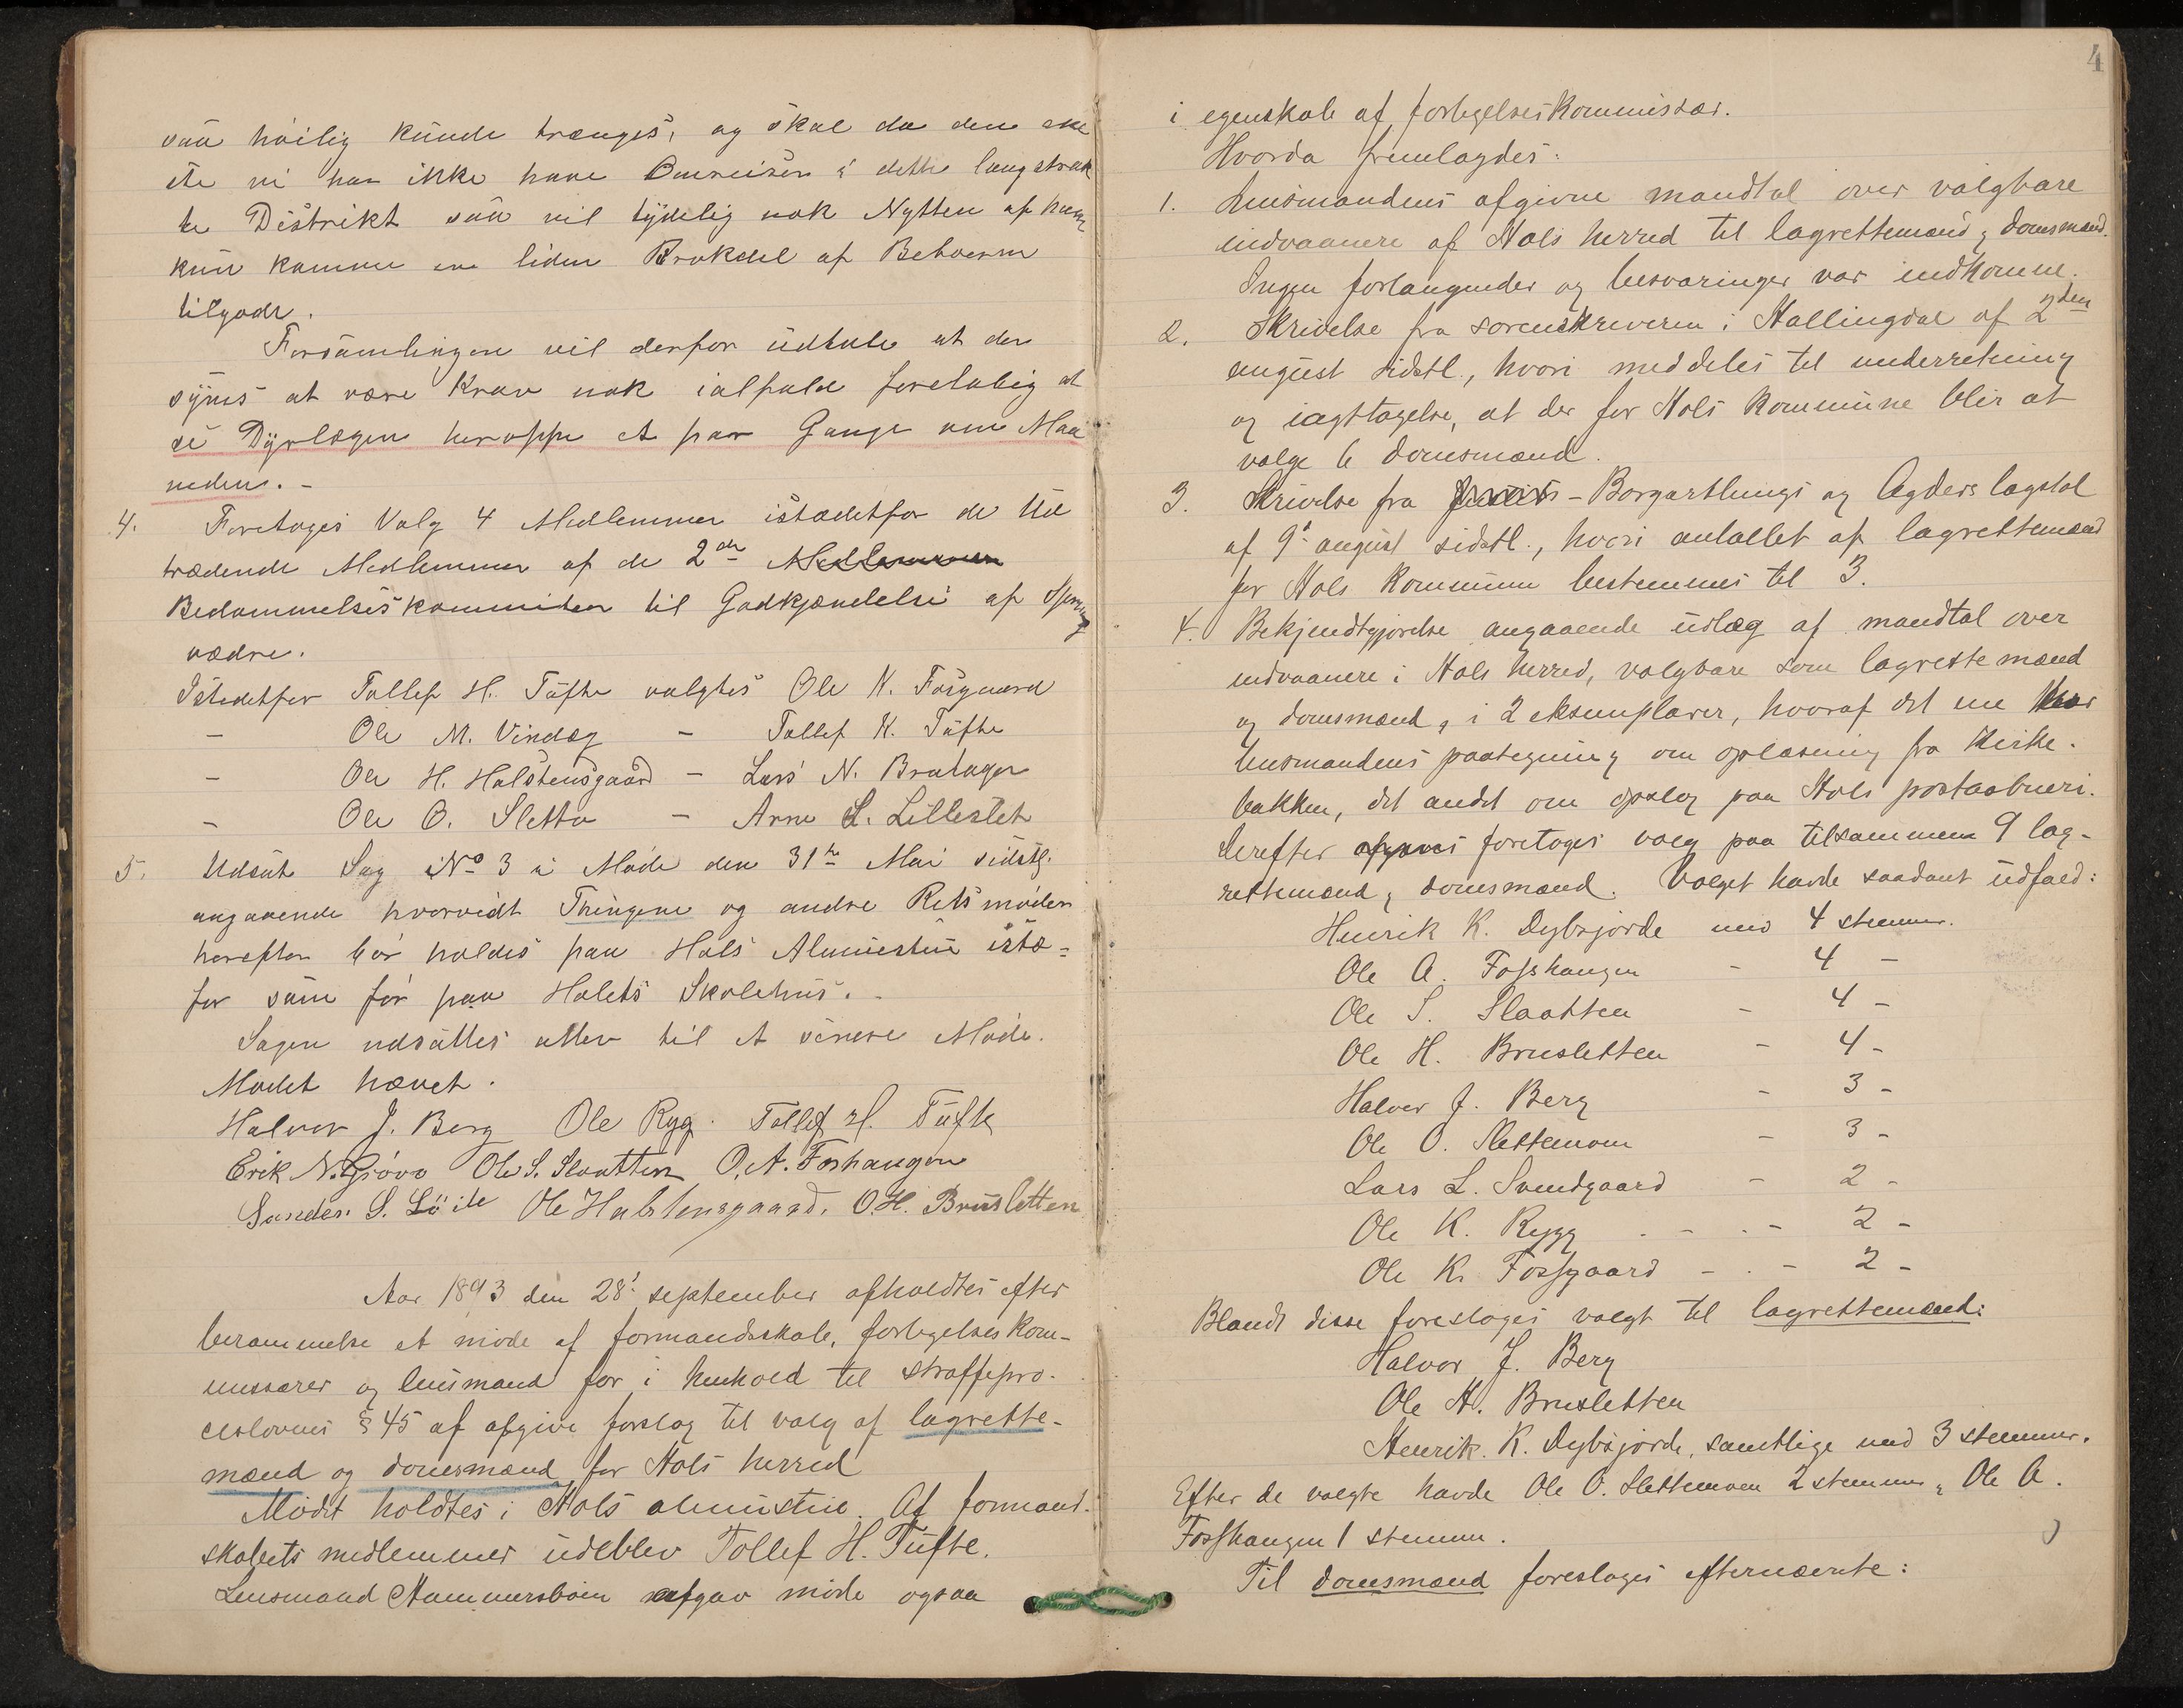 saa høilig kunde trænges, og skal da den ske
ete vi han ikke have Omreiser i dette langstrak
te Distrikt saa vil tydelig nok Nytten af ham
kun komme en liden Brøkdel af Behoverne
tilgode.
Forsamlingen vil derfor udtale at den
synes at være Krav nok ialfald foreløbig at
se Dyrlægen heroppe et par Gange om Maa
neden. -
4. Foretages Valg 4 Medlemmer istædetfor de Ud
trædende Medlemmer af de 2de Medlemmer
Bedømmelseskommiteer til Godkjændelse af Spring
vædre.
Istedetfor Tollef H. Tufte valgtes Ole K. Fosgaard
- Ole M. Vindeg - Tollef K. Tufte
- Ole H. Halstensgaard - Lars N. Bratager
- Ole O. Sletto - Arne L. Lilleslet
5. Udsat Sag No 3 i Møde den 31te Mai sidstl.
angaaende hvorvidt Thingene og andre Retsmøder
herefter bør holdes paa Hols Almuestue istæ-
for som før paa Holets Skolehus.
Sagen udsættes atter til et senere Møde.
Mødet hævet.
Halvor J. Berg Ole Ryg. Tollef H. Tufte
Erik N. Grøvo Ole S. Slaatten O. A. Foshaugen
Sander S. Løite Ole Halstensgaard. O. H. Brusletten
Aar 1893 den 28' september afholdtes efter
berammelse et møde af formandsskab, forligelseskom-
missærer og lensmand for i henhold til straffepro-
ceslovens § 45 af afgive forslag til valg af lagrette-
mænd og domsmænd for Hols herred
Mødet holdtes i Hols almustue. Af formand-
skabets medlemmer udeblev Tollef H. Tufte.
Lensmand Hammersbøen afgav møde ogsaa
4
i egenskab af forligelseskommissær.
Hvorda fremlagdes:
1. Lensmandens afgivne mandtal over valgbare
indvaanere af Hols herred til lagrettemænd & domsmænd.
Ingen forlangender og besværinger var indkomne.
2. Skrivelse fra sorenskriveren i Hallingdal af 2den
august sidstl., hvori meddeles til underretning
og iagttagelse, at der for Hols kommune blir at
vælge 6 domsmænd.
3. Skrivelse fra - Borgarthings og Agders lagstol
af 9' august sidstl., hvori antallet af lagrettemænd
for Hols kommune bestemmes til 3.
4. Bekjendtgjørelse angaaende udlæg af mandtal over
indvaanere i Hols herred, valgbare som lagrettemænd
og domsmænd, i 2 eksemplarer, hvoraf det ene har
lensmandens paategning om oplæsning fra kirke-
bakken, det andet om opslag paa Hols postaabneri.
Derefter foretoges valg paa tilsammen 9 lag-
rettemænd & domsmænd. Valget havde saadant udfald:
Henrik K. Dybsjorde med 4 stemmer.
Ole A. Fosshaugen - 4 -
Ole S. Slaatten - 4 -
Ole H. Brusletten - 4 -
Halvor J. Berg - 3 -
Ole O. Slettemoen - 3 -
Lars L. Svendgaard - 2 -
Ole K. Rygg - - 2 -
Ole K. Fossgaard - - 2 -
Blandt disse foresloges valgt til lagrettemænd:
Halvor J. Berg
Ole H. Brusletten
Henrik K. Dybsjorde, samtlige med 3 stemmer.
Efter de valgte havde Ole O. Slettemoen 2 stemmer, Ole A.
Fosshaugen 1 stemme.
Til domsmænd foresloges efternævnte: